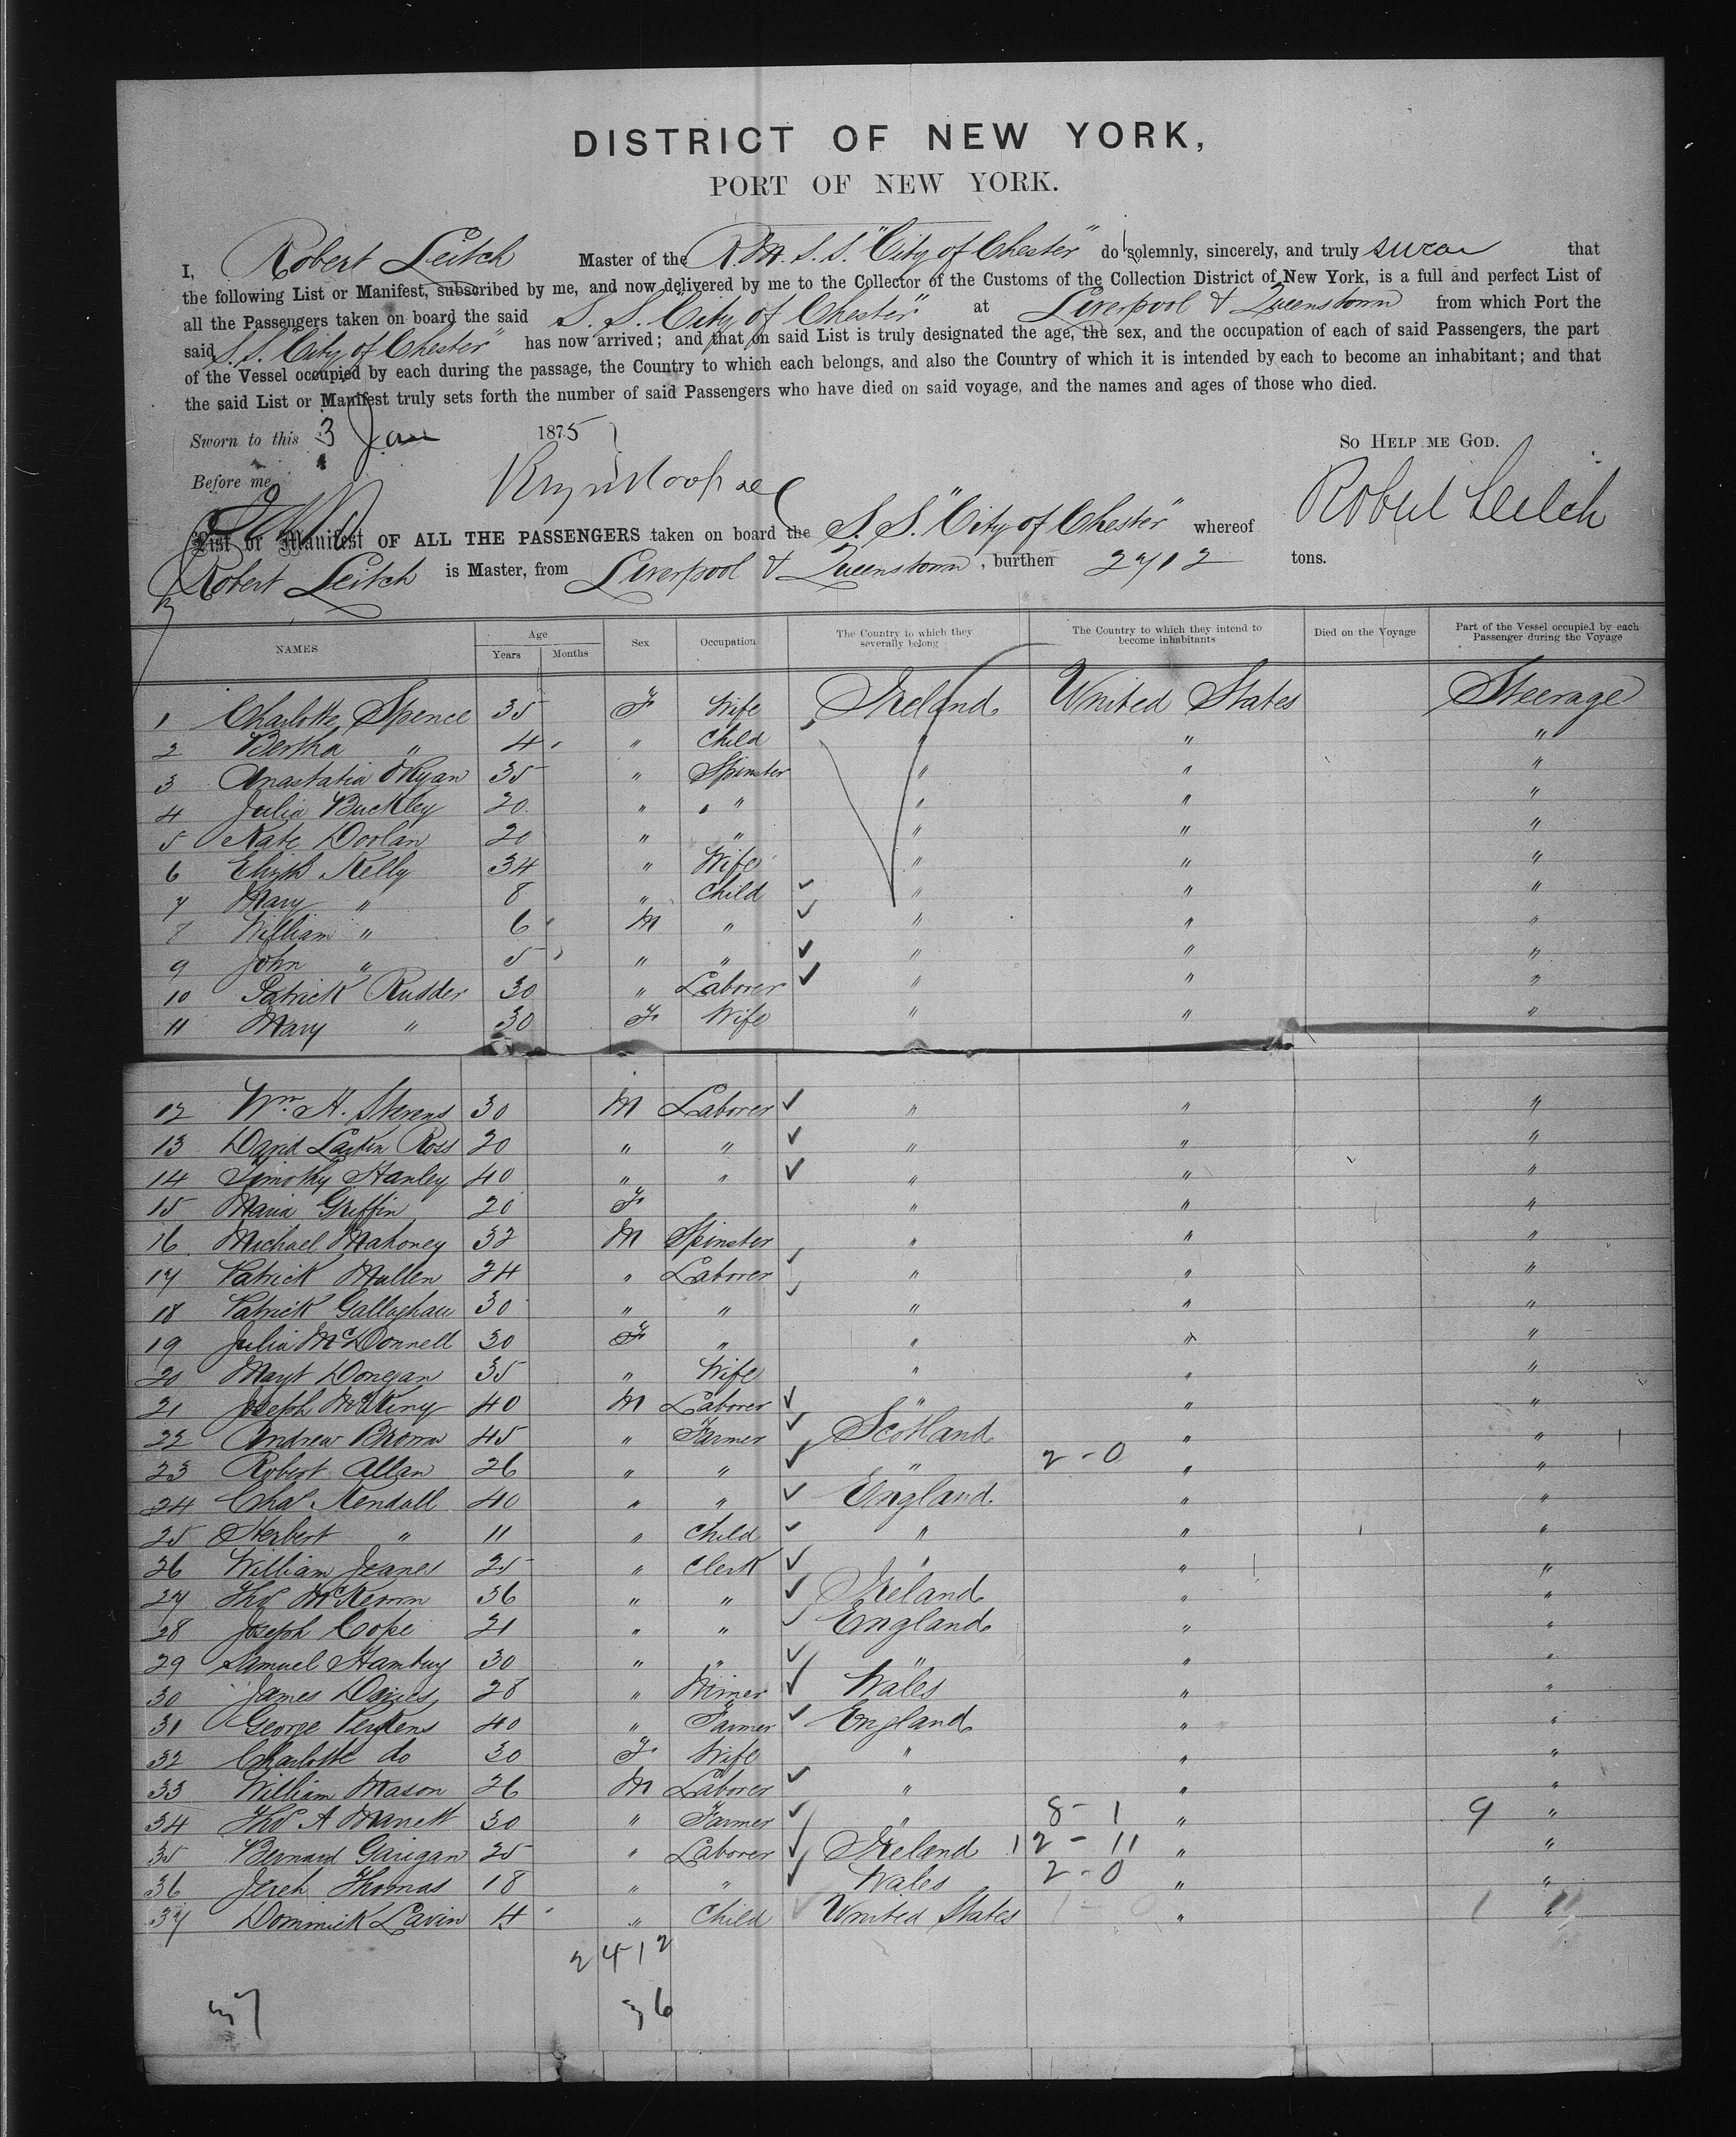 DISTRICT OF NEW YORK,
PORT OF NEW YORK.
I, Robert Leitch Master of the R.M.S.S. "City of Chester" do solemnly, sincerely, and truly swear that
the following List or Manifest, subscribed by me, and now delivered by me to the Collector of the Customs of the Collection District of New York, is a full and perfect List of
all the Passengers taken on board the said S.S. "City of Chester" at Liverpool & Queenstown from which Port the
said S.S. "City of Chester" has now arrived; and that on said List is truly designated the age, the sex, and the occupation of each of said Passengers, the part
of the Vessel occupied by each during the passage, the Country to which each belongs, and also the Country of which it is intended by each to become an inhabitant; and that
the said List or Manifest truly sets forth the number of said Passengers who have died on said voyage, and the names and ages of those who died.
Sworn to this 3 Jan 1875 So Help me God.
Before me Robert Leitch
List or Manifest OF ALL THE PASSENGERS taken on board the S.S. "City of Chester" whereof
Robert Leitch is Master, from Liverpool & Queenstown, burthen 2712 tons.
NAMES Age Years Months Sex Occupation The Country to which they severally belong The Country to which they intend to become inhabitants Died on the Voyage Part of the Vessel occupied by each Passenger during the Voyage
1 Charlotte Spence 35 F Wife Ireland United States Steerage
2 Bertha " 4 " Child " " "
3 Anastatia O'Ryan 35 " Spinster " " "
4 Julia Buckley 20 " " " " "
5 Kate Doolan 20 " " " " "
6 Elizth Kelly 34 " Wife " " "
7 Mary " 8 " Child " " "
8 William " 6 M " " " "
9 John " 5 " " " " "
10 Patrick Rudder 30 " Laborer " " "
11 Mary " 30 F Wife " " "
12 Wm. H. Stevens 30 M Laborer " " "
13 David Larkin Ross 20 " " " " "
14 Timothy Hanley 40 " " " " "
15 Maria Griffin 20 F " " "
16 Michael Mahoney 32 M Spinster " " "
17 Patrick Mullen 24 " Laborer " " "
18 Patrick Gallaghau 30 " " " " "
19 Julia McDonnell 30 F " " " "
20 Margt Donegan 35 " Wife " " "
21 Joseph 40 M Laborer " " "
22 Andrew Brown 45 " Farmer Scotland " "
23 Robert Allan 26 " " " 2-0 " "
24 Chas Kendall 40 " " England " "
25 Herbert " 11 " Child " " "
26 William Jeanes 25 " Clerk " " "
27 Thos McKeown 36 " " Ireland " "
28 Joseph Cope 21 " " England " "
29 Samuel Hambuy 30 " " " " "
30 James Davies 28 " Miner Wales " "
31 George Perkens 40 " Farmer England " "
32 Charlotte do 30 F Wife " " "
33 William Mason 26 M Laborer " " "
34 Thos A Manett 30 " Farmer " 8-1 " 9 "
35 Bernard Garigan 25 " Laborer Ireland 12-11 " "
36 Jereh Thomas 18 " " Wales 2-0 " "
37 Dommick Lavin 4 " Child United States 1-0 " 1 "
24-12
37 36